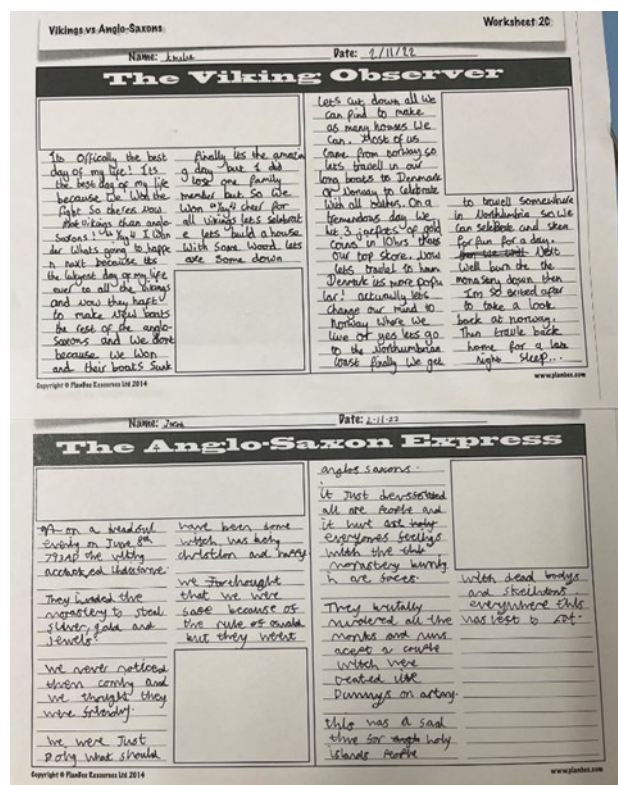 Vikings vs Anglo-Saxons
Worksheet 2C
Name:
Date: 2/11/22
The Viking Observer
Its Offically the best
day of my life! Its
the best day of my life
because we won the
fight So theres Now
Vikings than anglo-
Saxons! I Won
der Whats going to happe
n next because its
the day of my life
ever to all the Vikings
and now they haft
to make New boats
the rest of the anglo-
Saxons and We dont
because We Won
and their boats Sunk
finally its the amazin
g day but I did
lose one family
member but So We
Won cheer for
all Vikings lets selebrat
e lets build a house
With Some Wood lets
axe Some down
Lets cut down all We
can find to make
as many houses We
can. Most of us
Came from norway so
lets travell in our
long boats to Denmark
or Norway to celebrate
With all others. On a
tremendous day We
hit 3 jackpots of gold
coins in 10hrs thats
our top score. Now
lets travel to
Denmark its more popu
lar! actually lets
change our mind to
Norway Where We
live or yes lets go
to the Northumbrian
coast finally We get
to travell somewhere
in Northumbria so We
can selebrate and
for fun for a day.
Next
Well burn the the
monastery down then
Im So exited after
to take a look
back at norway.
Then travle back
home for a late
night Sleep...
Copyright © PlanBee Resources Ltd 2014
www.planbee.com
Name:
Date: 2-11-22
The Anglo-Saxon Express
on a dreadful
on June 8th
793AD the
They the
monastery to steal
silver, gold and
jewels.
we never noticed
them coming and
we thought they
were
We were Just
what should
have been some
witch was being
christian and happy.
we thought
that we were
safe because of
the rule of
but they went
anglos saxons.
it Just
all are People and
it hurt
everyones feelings
with the
monastery
n are faces.
They brutally
murdered all the
monks and nuns
acept a couple
witch were
treated like
Dummys
this was a sad
time for holy
islands People
with dead bodys
and
everywhere this
was left to
Copyright © PlanBee Resources Ltd 2014
www.planbee.com